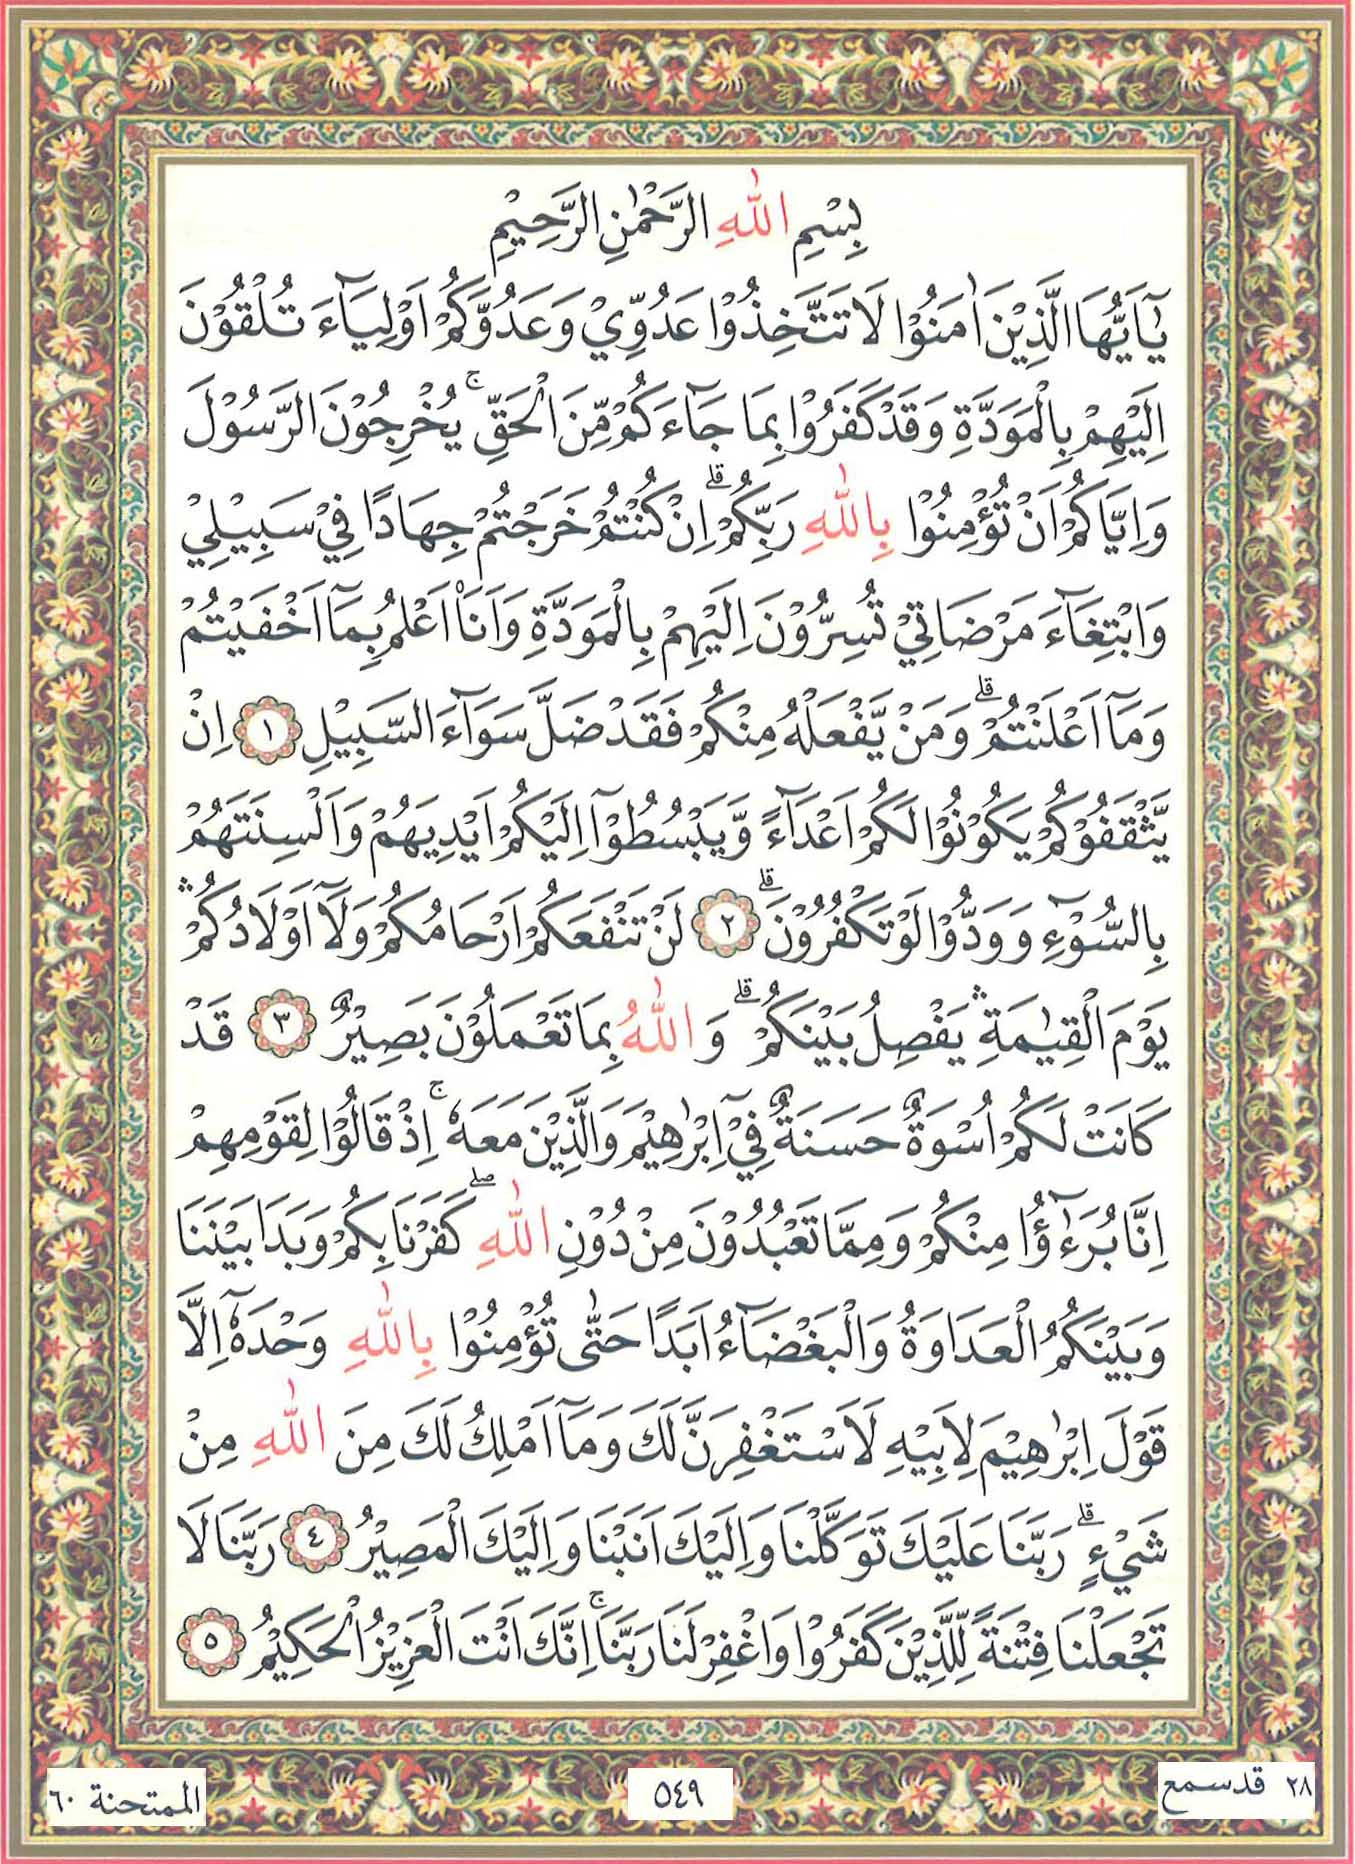 بِسْمِ اللّٰهِ الرَّحْمٰنِ الرَّحِيْمِ
يٰٓاَيُّهَا الَّذِيْنَ اٰمَنُوْا لَا تَتَّخِذُوْا عَدُوِّيْ وَعَدُوَّكُمْ اَوْلِيَآءَ تُلْقُوْنَ
اِلَيْهِمْ بِالْمَوَدَّةِ وَقَدْ كَفَرُوْا بِمَا جَآءَكُمْ مِّنَ الْحَقِّ ۚ يُخْرِجُوْنَ الرَّسُوْلَ
وَاِيَّاكُمْ اَنْ تُؤْمِنُوْا بِاللّٰهِ رَبِّكُمْ ۗ اِنْ كُنْتُمْ خَرَجْتُمْ جِهَادًا فِيْ سَبِيْلِيْ
وَابْتِغَآءَ مَرْضَاتِيْ تُسِرُّوْنَ اِلَيْهِمْ بِالْمَوَدَّةِ وَاَنَا۠ اَعْلَمُ بِمَآ اَخْفَيْتُمْ
وَمَآ اَعْلَنْتُمْ ۗ وَمَنْ يَّفْعَلْهُ مِنْكُمْ فَقَدْ ضَلَّ سَوَآءَ السَّبِيْلِ ١ اِنْ
يَّثْقَفُوْكُمْ يَكُوْنُوْا لَكُمْ اَعْدَآءً وَّيَبْسُطُوْٓا اِلَيْكُمْ اَيْدِيَهُمْ وَاَلْسِنَتَهُمْ
بِالسُّوْۤءِ وَوَدُّوْا لَوْ تَكْفُرُوْنَ ۗ ٢ لَنْ تَنْفَعَكُمْ اَرْحَامُكُمْ وَلَآ اَوْلَادُكُمْ ۛ
يَوْمَ الْقِيٰمَةِ ۛ يَفْصِلُ بَيْنَكُمْ ۗ وَاللّٰهُ بِمَا تَعْمَلُوْنَ بَصِيْرٌ ٣ قَدْ
كَانَتْ لَكُمْ اُسْوَةٌ حَسَنَةٌ فِيْٓ اِبْرٰهِيْمَ وَالَّذِيْنَ مَعَهٗ ۚ اِذْ قَالُوْا لِقَوْمِهِمْ
اِنَّا بُرَءٰۤؤُا مِنْكُمْ وَمِمَّا تَعْبُدُوْنَ مِنْ دُوْنِ اللّٰهِ ۖ كَفَرْنَا بِكُمْ وَبَدَا بَيْنَنَا
وَبَيْنَكُمُ الْعَدَاوَةُ وَالْبَغْضَآءُ اَبَدًا حَتّٰى تُؤْمِنُوْا بِاللّٰهِ وَحْدَهٗٓ اِلَّا
قَوْلَ اِبْرٰهِيْمَ لِاَبِيْهِ لَاَسْتَغْفِرَنَّ لَكَ وَمَآ اَمْلِكُ لَكَ مِنَ اللّٰهِ مِنْ
شَيْءٍ ۗ رَبَّنَا عَلَيْكَ تَوَكَّلْنَا وَاِلَيْكَ اَنَبْنَا وَاِلَيْكَ الْمَصِيْرُ ٤ رَبَّنَا لَا
تَجْعَلْنَا فِتْنَةً لِّلَّذِيْنَ كَفَرُوْا وَاغْفِرْ لَنَا رَبَّنَا ۚ اِنَّكَ اَنْتَ الْعَزِيْزُ الْحَكِيْمُ ٥
٢٨ قدسمع
٥٤٩
الممتحنة ٦٠